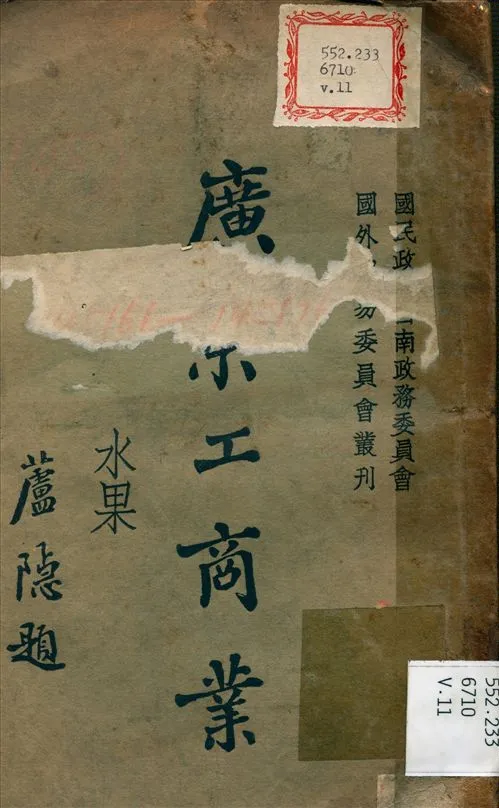 552.233
6710
v.11
國民政
南政務委員會
國外
委員會叢刊
廣
工商業
水果
蘆隱題
552.233
6710
V.11